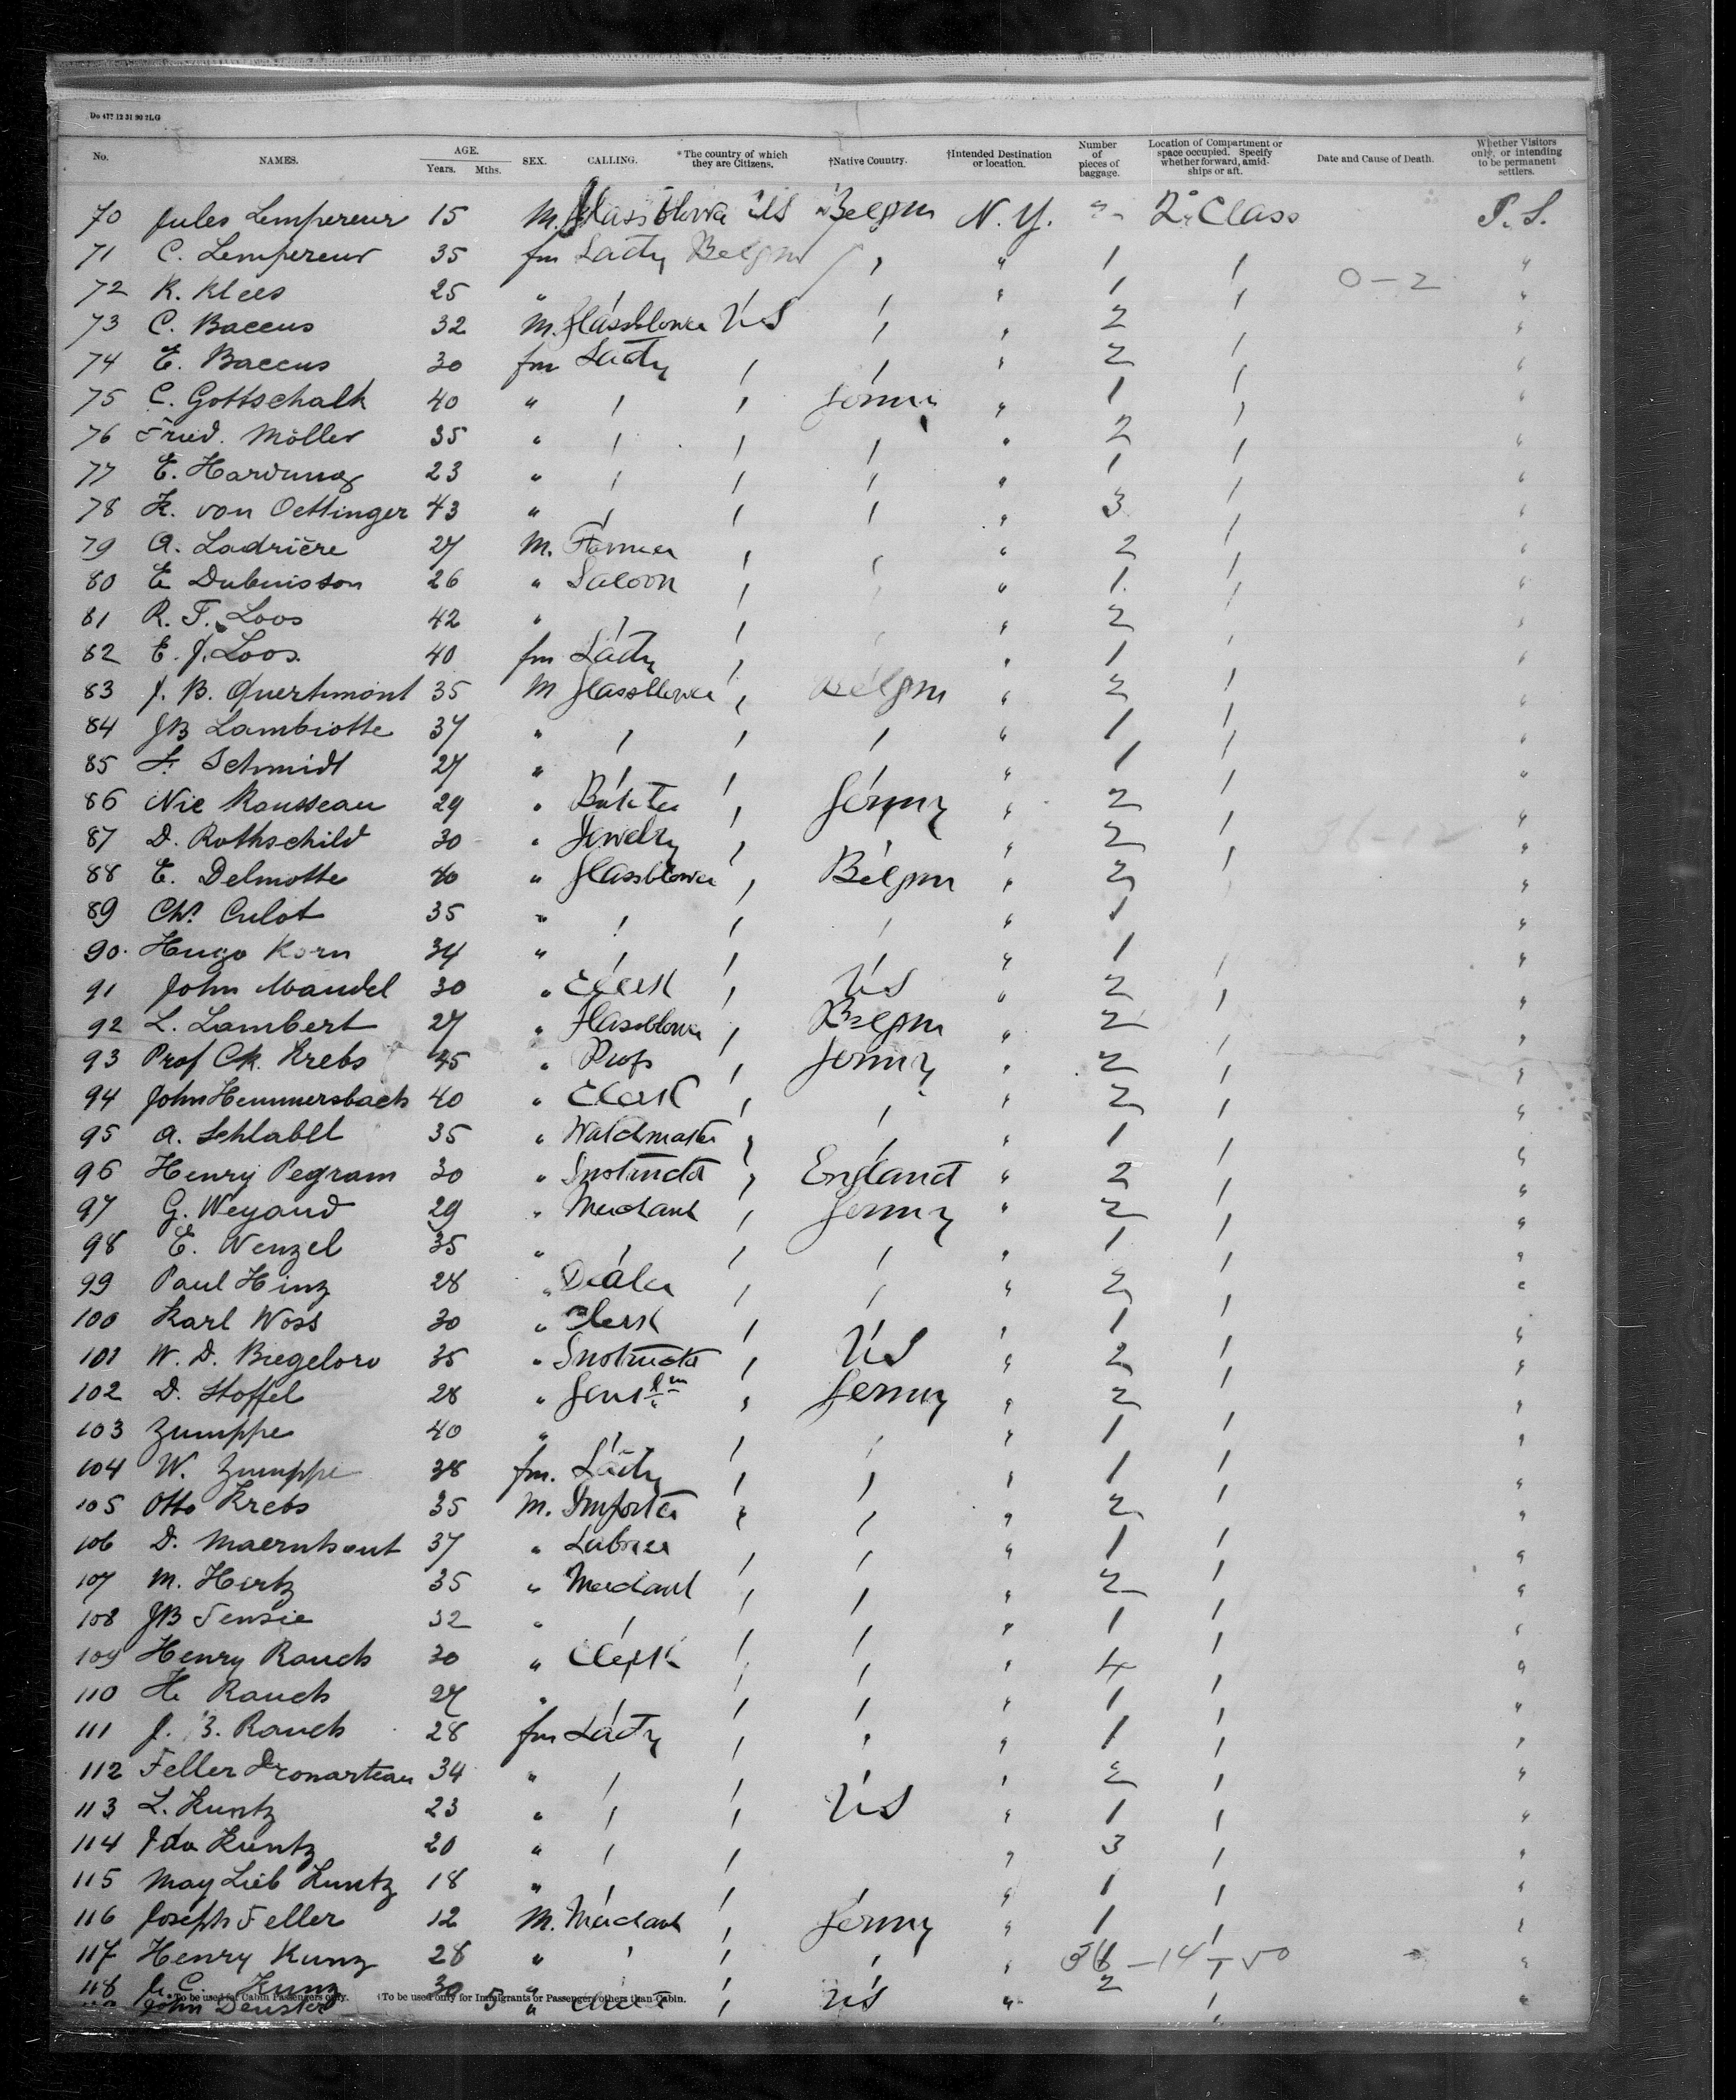 Do 477 12 31 90 2LG
No. NAMES. AGE. Years. Mths. SEX. CALLING. *The country of which they are Citizens. †Native Country. †Intended Destination or location. Number of pieces of baggage. Location of Compartment or space occupied. Specify whether forward, amidships or aft. Date and Cause of Death. Whether Visitors only, or intending to be permanent settlers.
70 Jules Lempereur 15 M. Glassblower US Belgm N. Y. 2. Class P. S.
71 C. Lempereur 35 fm Lady Belgm / " 1 / "
72 K. Klees 25 " / / " 1 / 0-2 "
73 C. Baccus 32 M. Glassblower US / " 2 / "
74 E. Baccus 30 fm Lady / / " 2 / "
75 C. Gottschalk 40 " / / Germy " 1 / "
76 Fried. Möller 35 " / / / " 2 / "
77 E. Hardung 23 " / / / " 1 / "
78 K. von Oettinger 43 " / / / " 3 / "
79 A. Ladrière 27 M. Farmer / / " 2 / "
80 E Dubuisson 26 " Saloon / / " 1 / "
81 R. F. Loos 42 " / / / " 2 / "
82 E. J. Loos 40 fm Lady / / " 1 / "
83 J. B. Quertimont 35 M Glassblower / Belgm " 2 / "
84 JB Lambiotte 37 " / / / " 1 / "
85 F. Schmidt 27 " / / / " 1 / "
86 Nic Rousseau 29 " / Germy " 2 / "
87 D. Rothschild 30 " Jewelry / / " 2 / "
88 E. Delmotte 40 " Glassblower / Belgm " 2 / "
89 Chs. Culot 35 " / / / " 1 "
90 Hugo Korn 34 " / / / " 1 / "
91 John Mandel 30 " Clerk / US " 2 / "
92 L. Lambert 27 " Glassblower / Belgm " 2 / "
93 Prof Ch. Krebs 45 " Profs / Germy " 2 / "
94 John Hemmersbach 40 " Clerk / / " 2 / "
95 A. Schlabll 35 " Watchmaker / / " 1 / "
96 Henry Pegram 30 " Instructor / England " 2 / "
97 G. Weyand 29 " Merchant / Germy " 2 / "
98 E. Wenzel 35 " / / / " 1 / "
99 Paul Hinz 28 " Dealer / / " 2 / "
100 Karl Woss 30 " Clerk / / " 1 / "
101 W. D. Biegelow 35 " Instructor / US " 2 / "
102 D. Stoffel 28 " Gentlm / Germy " 2 / "
103 Zumppe 40 " / / / " 1 / "
104 W. Zumppe 38 fm. Lady / / " 1 / "
105 Otto Krebs 35 M. Importer / / " 2 / "
106 D. Maernhout 37 " Laborer / / " 1 / "
107 M. Hertz 35 " Merchant / / " 2 / "
108 JB Tensie 32 " / / / " 1 / "
109 Henry Rauch 30 " Clerk / / " 4 / "
110 H. Rauch 27 " / / / " 1 / "
111 J. B. Rauch 28 fm Lady / / " 1 / "
112 Feller 34 " / / / " 2 / "
113 L. Kuntz 23 " / / US " 1 / "
114 Ida Kuntz 20 " / / " 3 / "
115 May Lieb Kuntz 18 " / / / " 1 / "
116 Joseph Feller 12 M. Merchant / Germy " 1 / "
117 Henry Kunz 28 " / / / " /
118 C. Kunz 30 " / / " 2 /
John Deuster US
*To be used for Cabin Passengers only. †To be used only for Immigrants or Passengers others than Cabin.